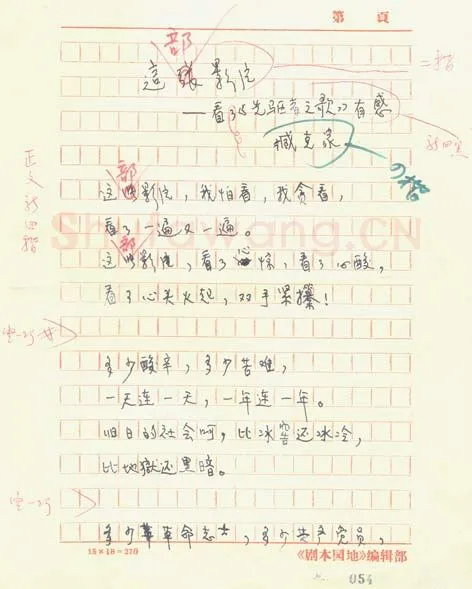 第 頁
部
這張影片
二楷
——看了《先驱者之歌》有感
臧克家
新四黑
4楷
正文新四楷
部
这影片，我怕看，我贪看，
看了一遍又一遍。
部
这影片，看了心惊，看了心酸，
看了心头火起，双手紧攥！
空一行
多少酸辛，多少苦难，
一天连一天，一年连一年。
旧日的社会呵，比冰窖还冰冷，
比地獄还黑暗。
空一行
多少革命志士，多少共产党员，
15×18=270
《剧本园地》编辑部
054
Shufawang.CN